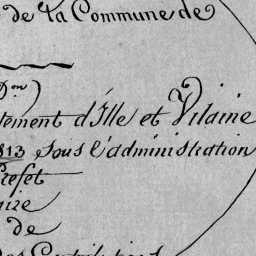 de la Commune de
on)
tement d'Ille et Vilaine
813 sous l'administration
réfet
aire
de